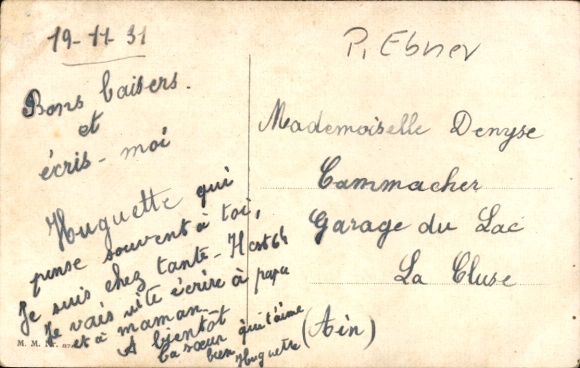 19-11-31
P. Ebner
Bons baisers.
et
écris-moi
Huguette qui
pense souvent à toi,
Je suis chez tante-H
Je vais vite écrire à papa
et à maman-
A bientot
ta sœur qui t'aime
bien Huguette
Mademoiselle Denyse
Cammacher
Garage du Lac
La Cluse
(Ain)
M. M. Nr.